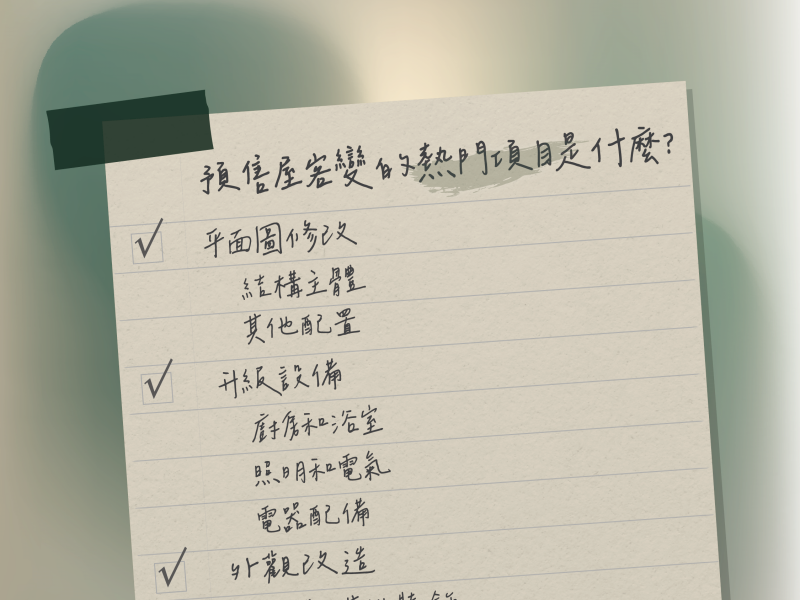 預售屋客變的熱門項目是什麼?
平面圖修改
結構主體
其他配置
升級設備
廚房和浴室
照明和電氣
電器配備
外觀改造